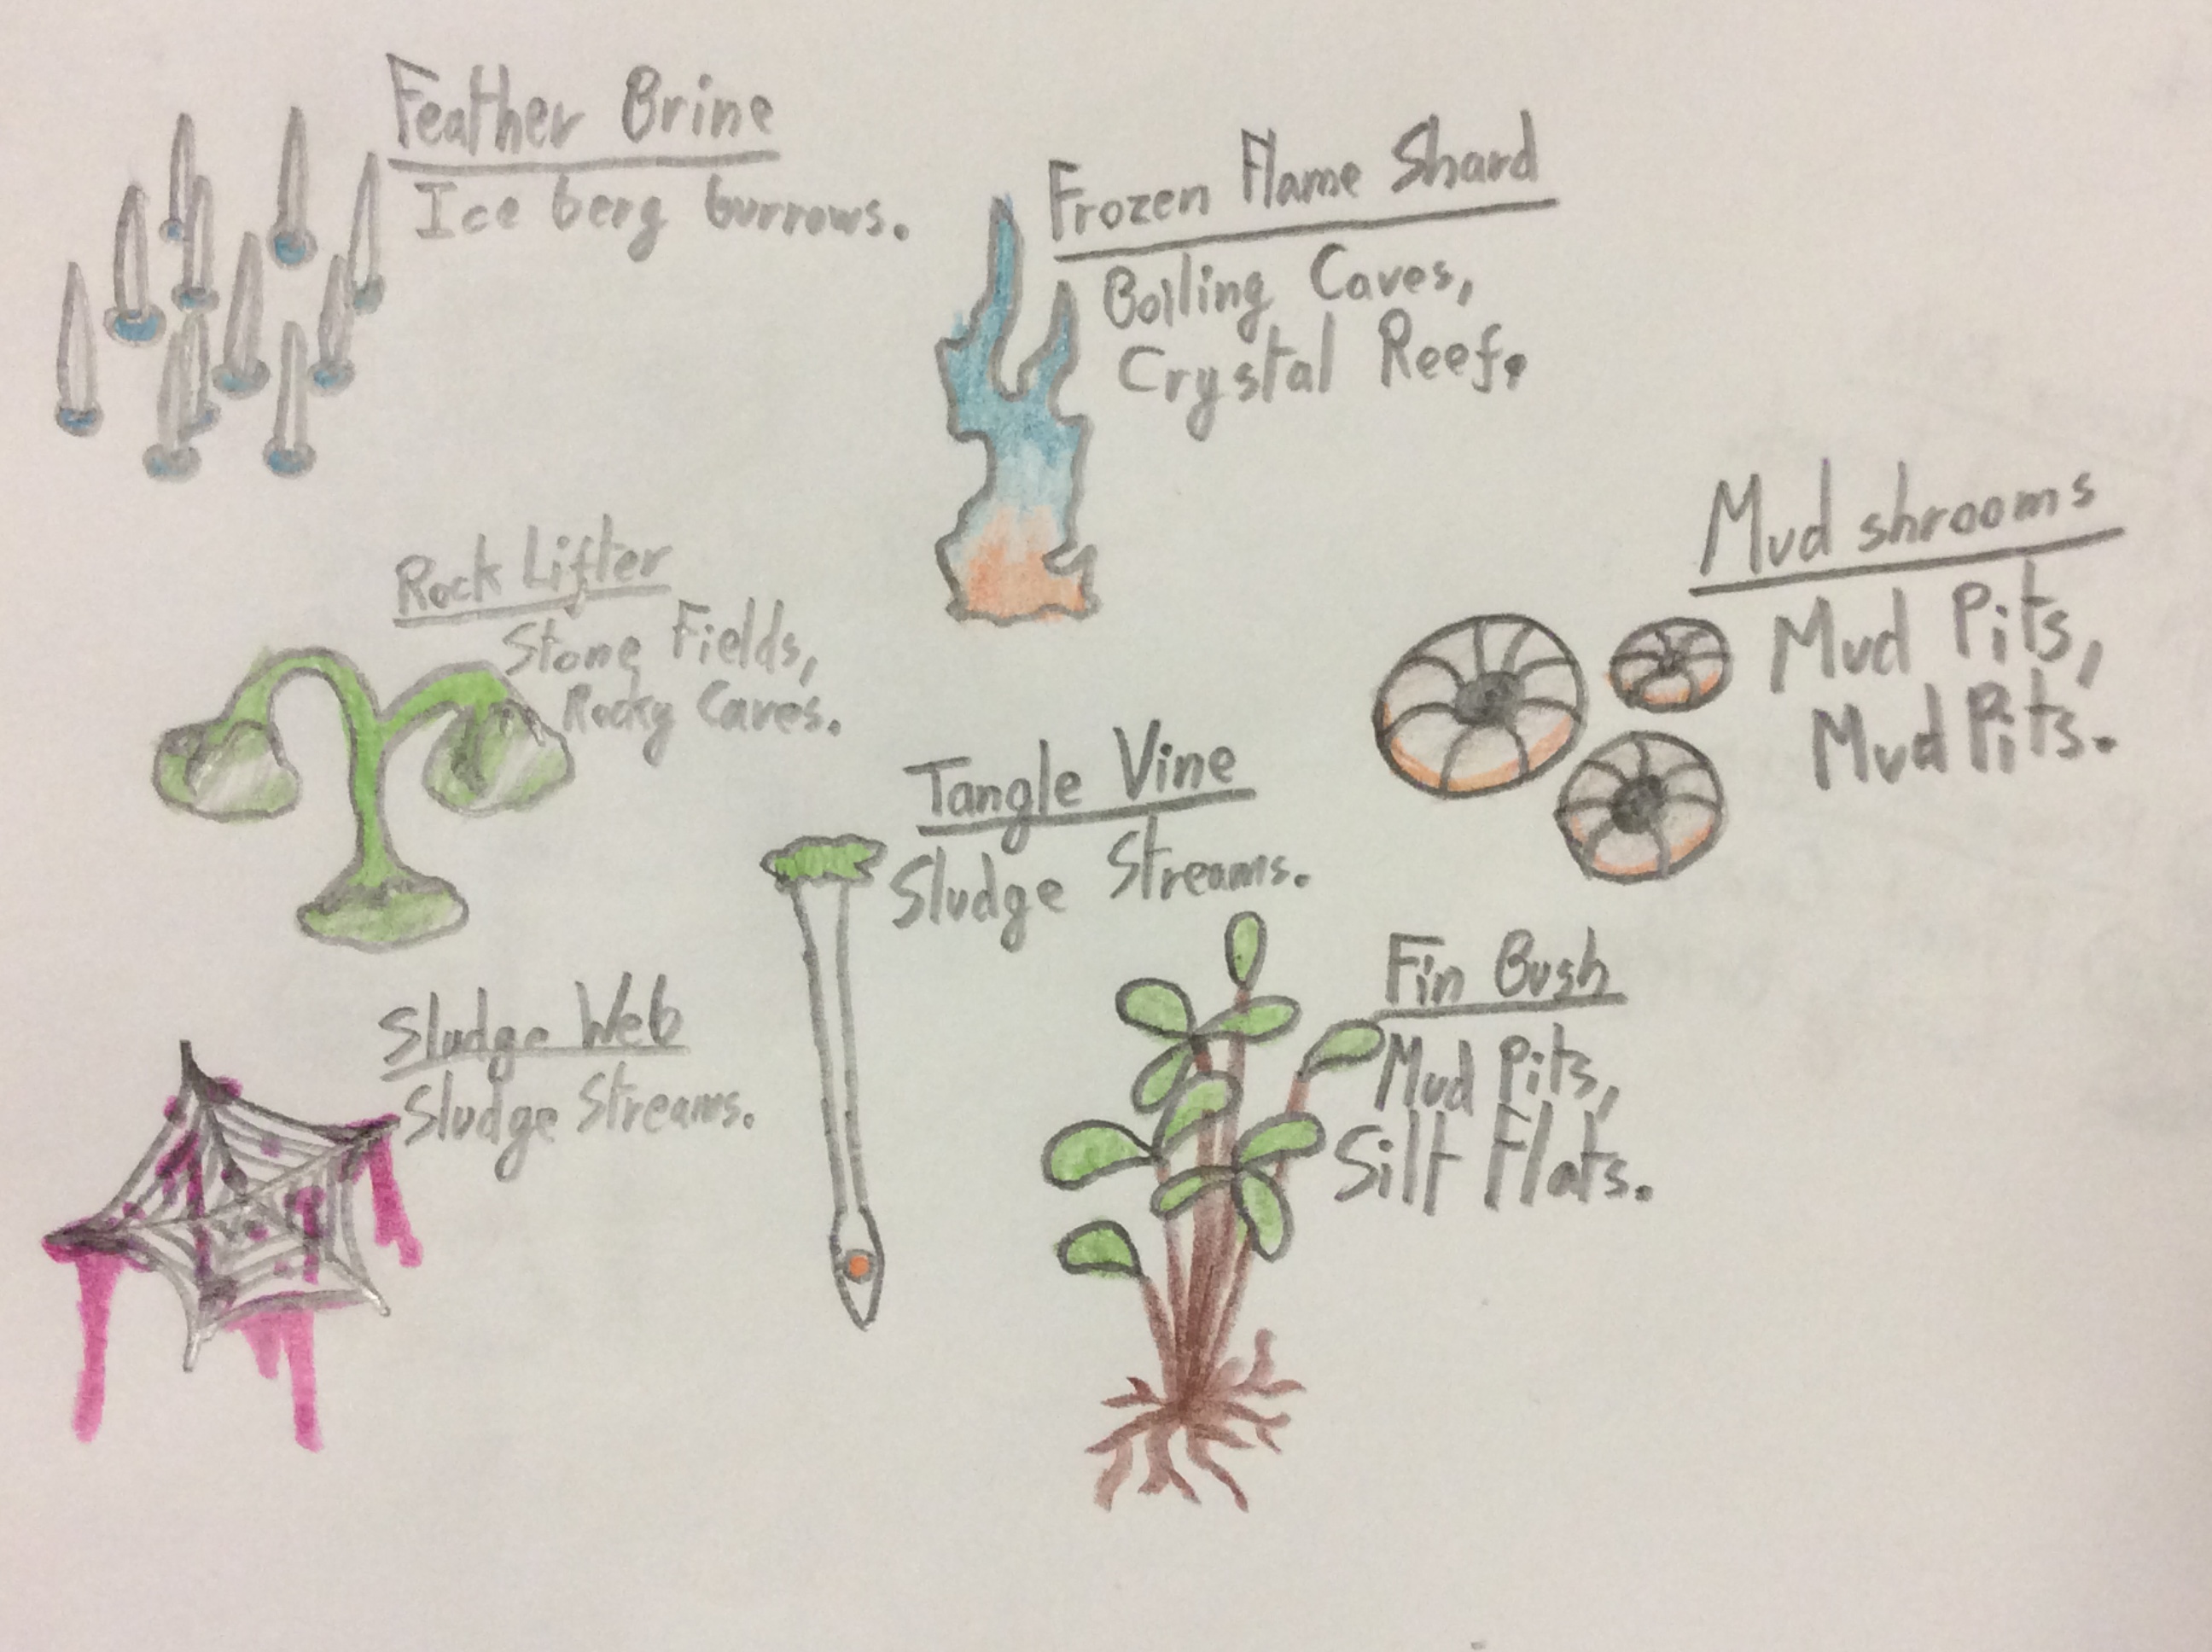 Feather Brine
Ice berg burrows.
Frozen Flame Shard
Boiling Caves,
Crystal Reef.
Mud shrooms
Mud Pits,
Mud Pits.
Rock Lifter
Stone Fields,
Rocky Caves.
Tangle Vine
Sludge Streams.
Fin Bush
Mud Pits,
Silt Flats.
Sludge Web
Sludge Streams.